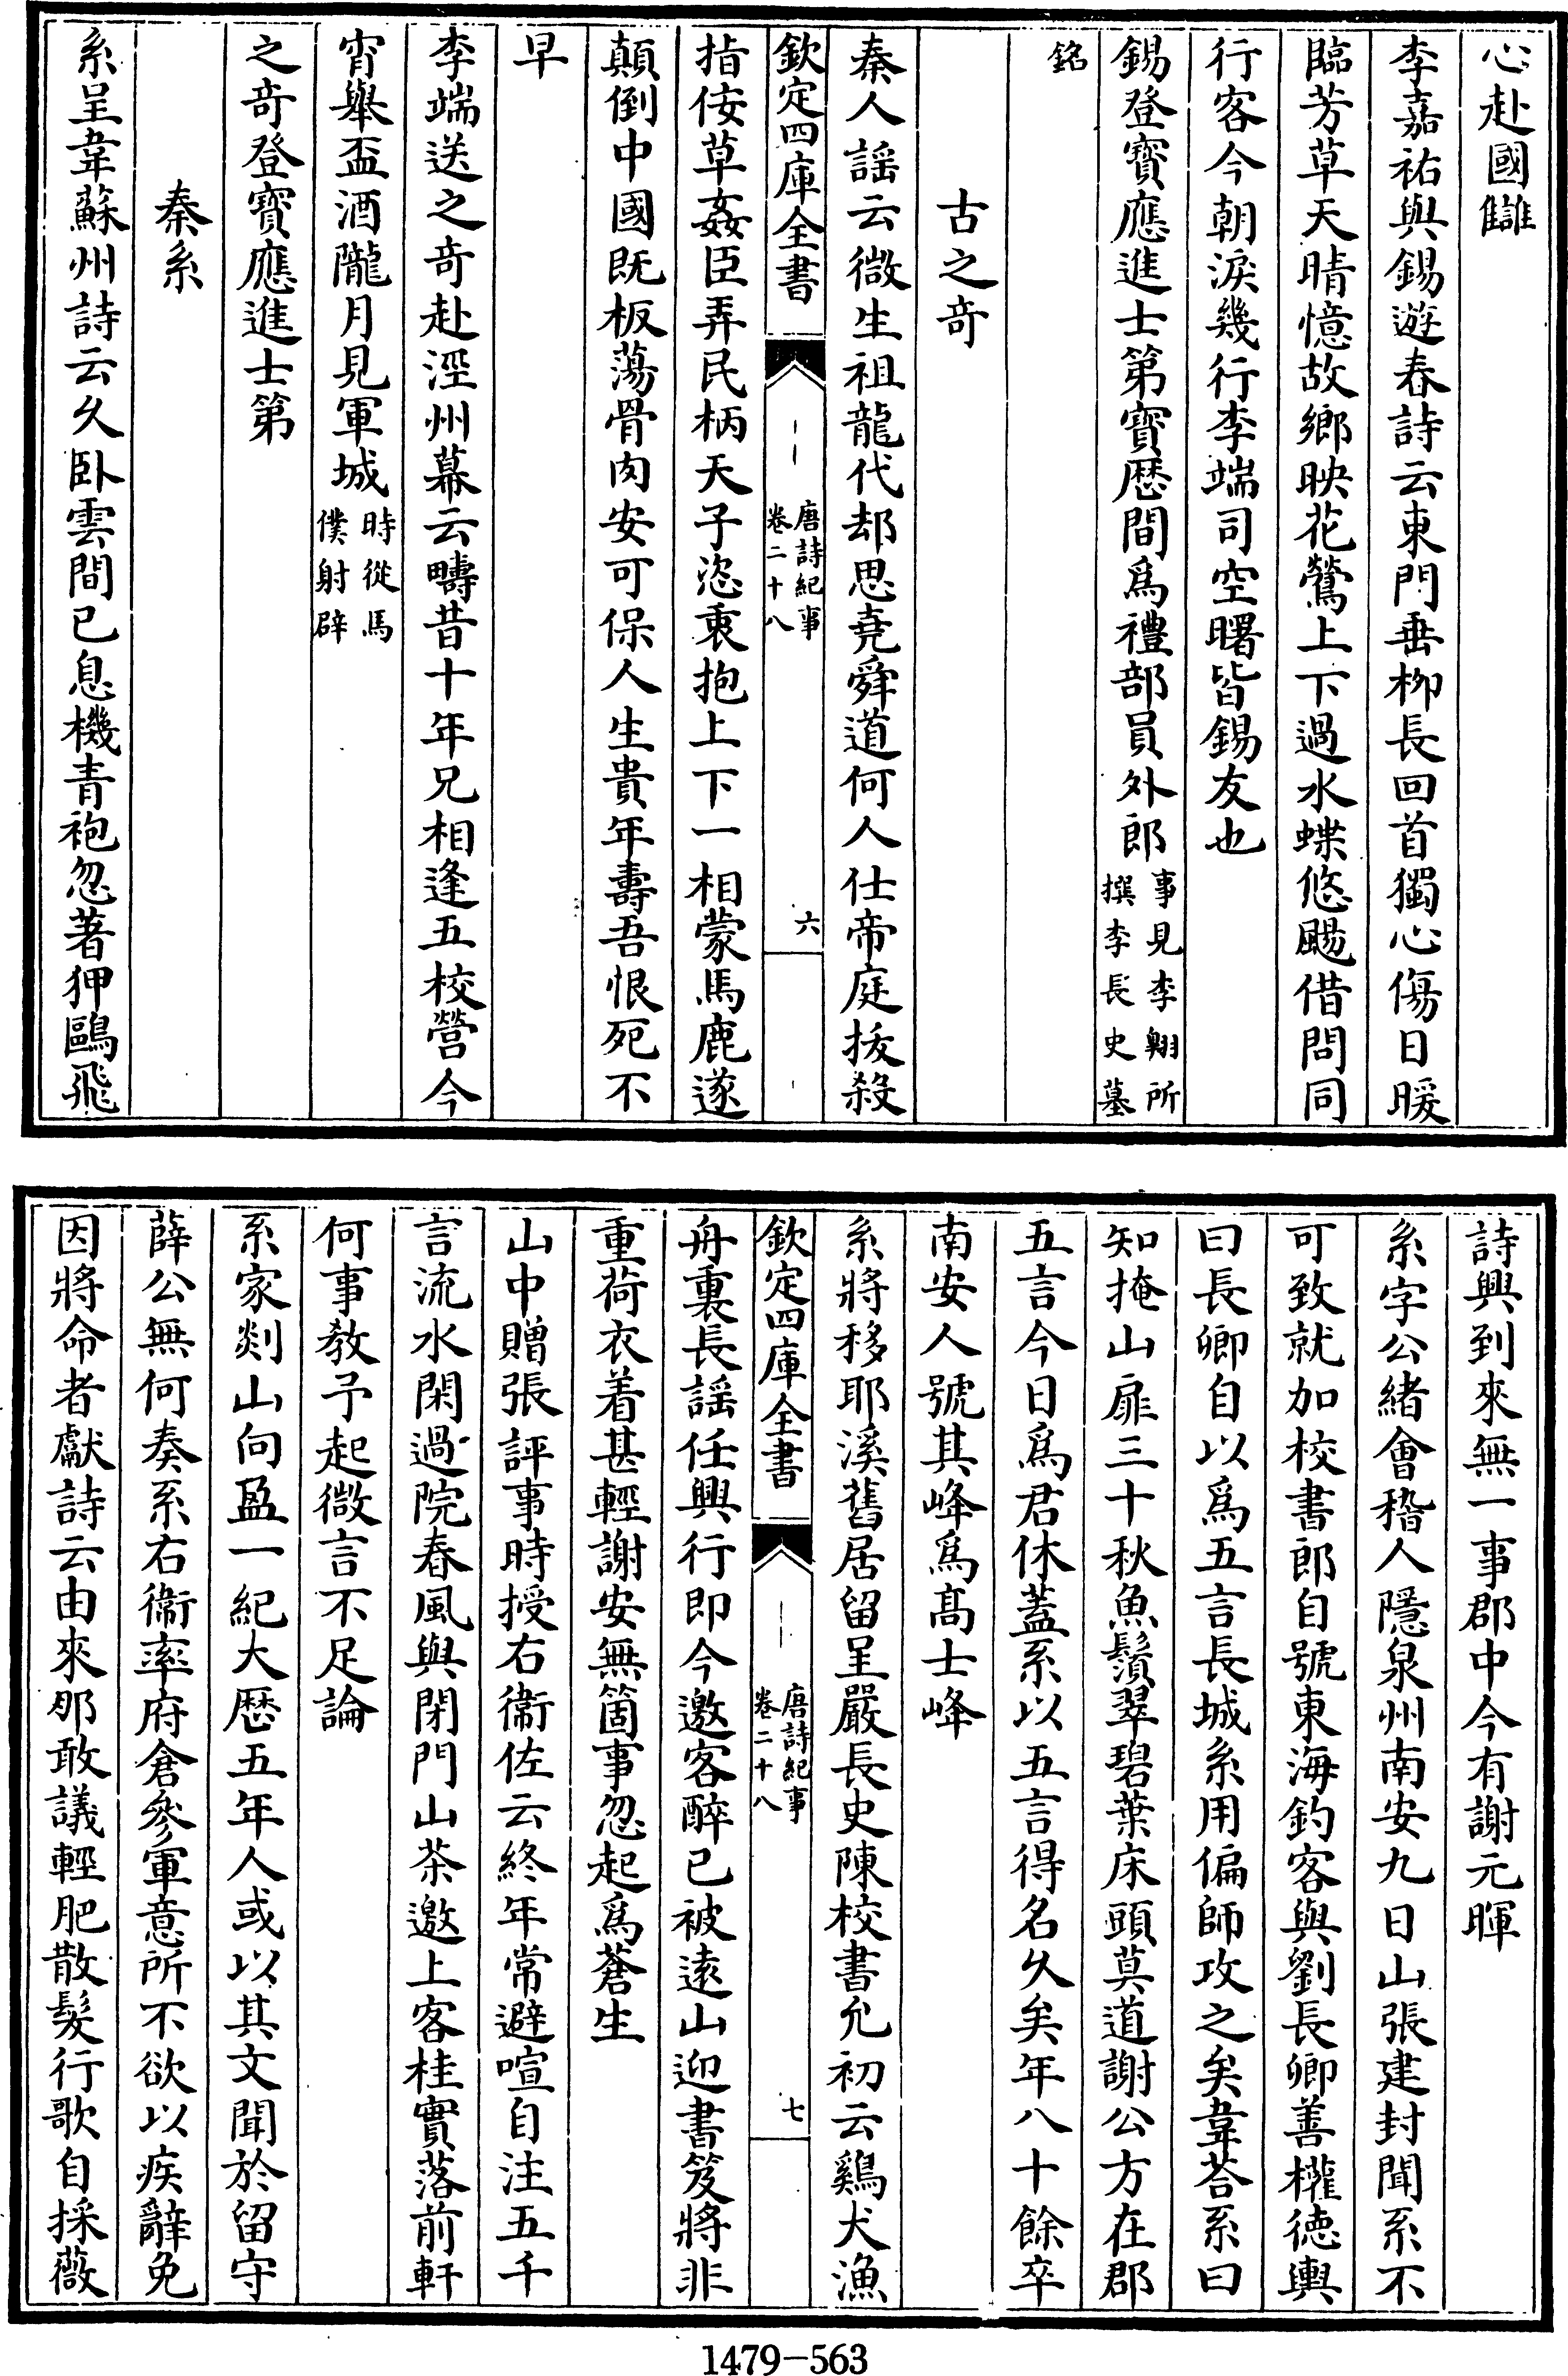 心赴國讎
李嘉祐與錫遊春詩云東門垂柳長回首獨心傷日暖
臨芳草天晴憶故鄉映花鶯上下過水蝶悠颺借問同
行客今朝淚幾行李端司空曙皆錫友也
錫登寶應進士第寶厯間爲禮部員外郎事見李翺所撰李長史墓
銘
古之奇
秦人謡云微生祖龍代却思堯舜道何人仕帝庭拔殺
欽定四庫全書
唐詩紀事
卷二十八
六
指佞草姦臣弄民柄天子恣衷抱上下一相蒙馬鹿遂
顛倒中國既板蕩骨肉安可保人生貴年壽吾恨死不
早
李端送之奇赴涇州幕云疇昔十年兄相逢五校營今
宵舉盃酒隴月見軍城時從馬僕射辟
之奇登寶應進士第
秦系
系呈韋蘇州詩云久卧雲間已息機青袍忽著狎鷗飛
詩興到來無一事郡中今有謝元暉
系字公緒會稽人隱泉州南安九日山張建封聞系不
可致就加校書郎自號東海釣客與劉長卿善權德輿
曰長卿自以爲五言長城系用偏師攻之矣韋荅系曰
知掩山扉三十秋魚鬚翠碧葉床頭莫道謝公方在郡
五言今日爲君休蓋系以五言得名久矣年八十餘卒
南安人號其峰爲髙士峰
系將移耶溪舊居留呈嚴長史陳校書允初云鷄犬漁
欽定四庫全書
唐詩紀事
卷二十八
七
舟裏長謡任興行即今邀客醉已被逺山迎書笈將非
重荷衣着甚輕謝安無箇事忽起爲蒼生
山中贈張評事時授右衞佐云終年常避喧自注五千
言流水閑過院春風與閉門山茶邀上客桂實落前軒
何事教予起微言不足論
系家剡山向盈一紀大厯五年人或以其文聞於留守
薛公無何奏系右衞率府倉參軍意所不欲以疾辭免
因將命者獻詩云由來那敢議輕肥散髮行歌自採薇
1479-563